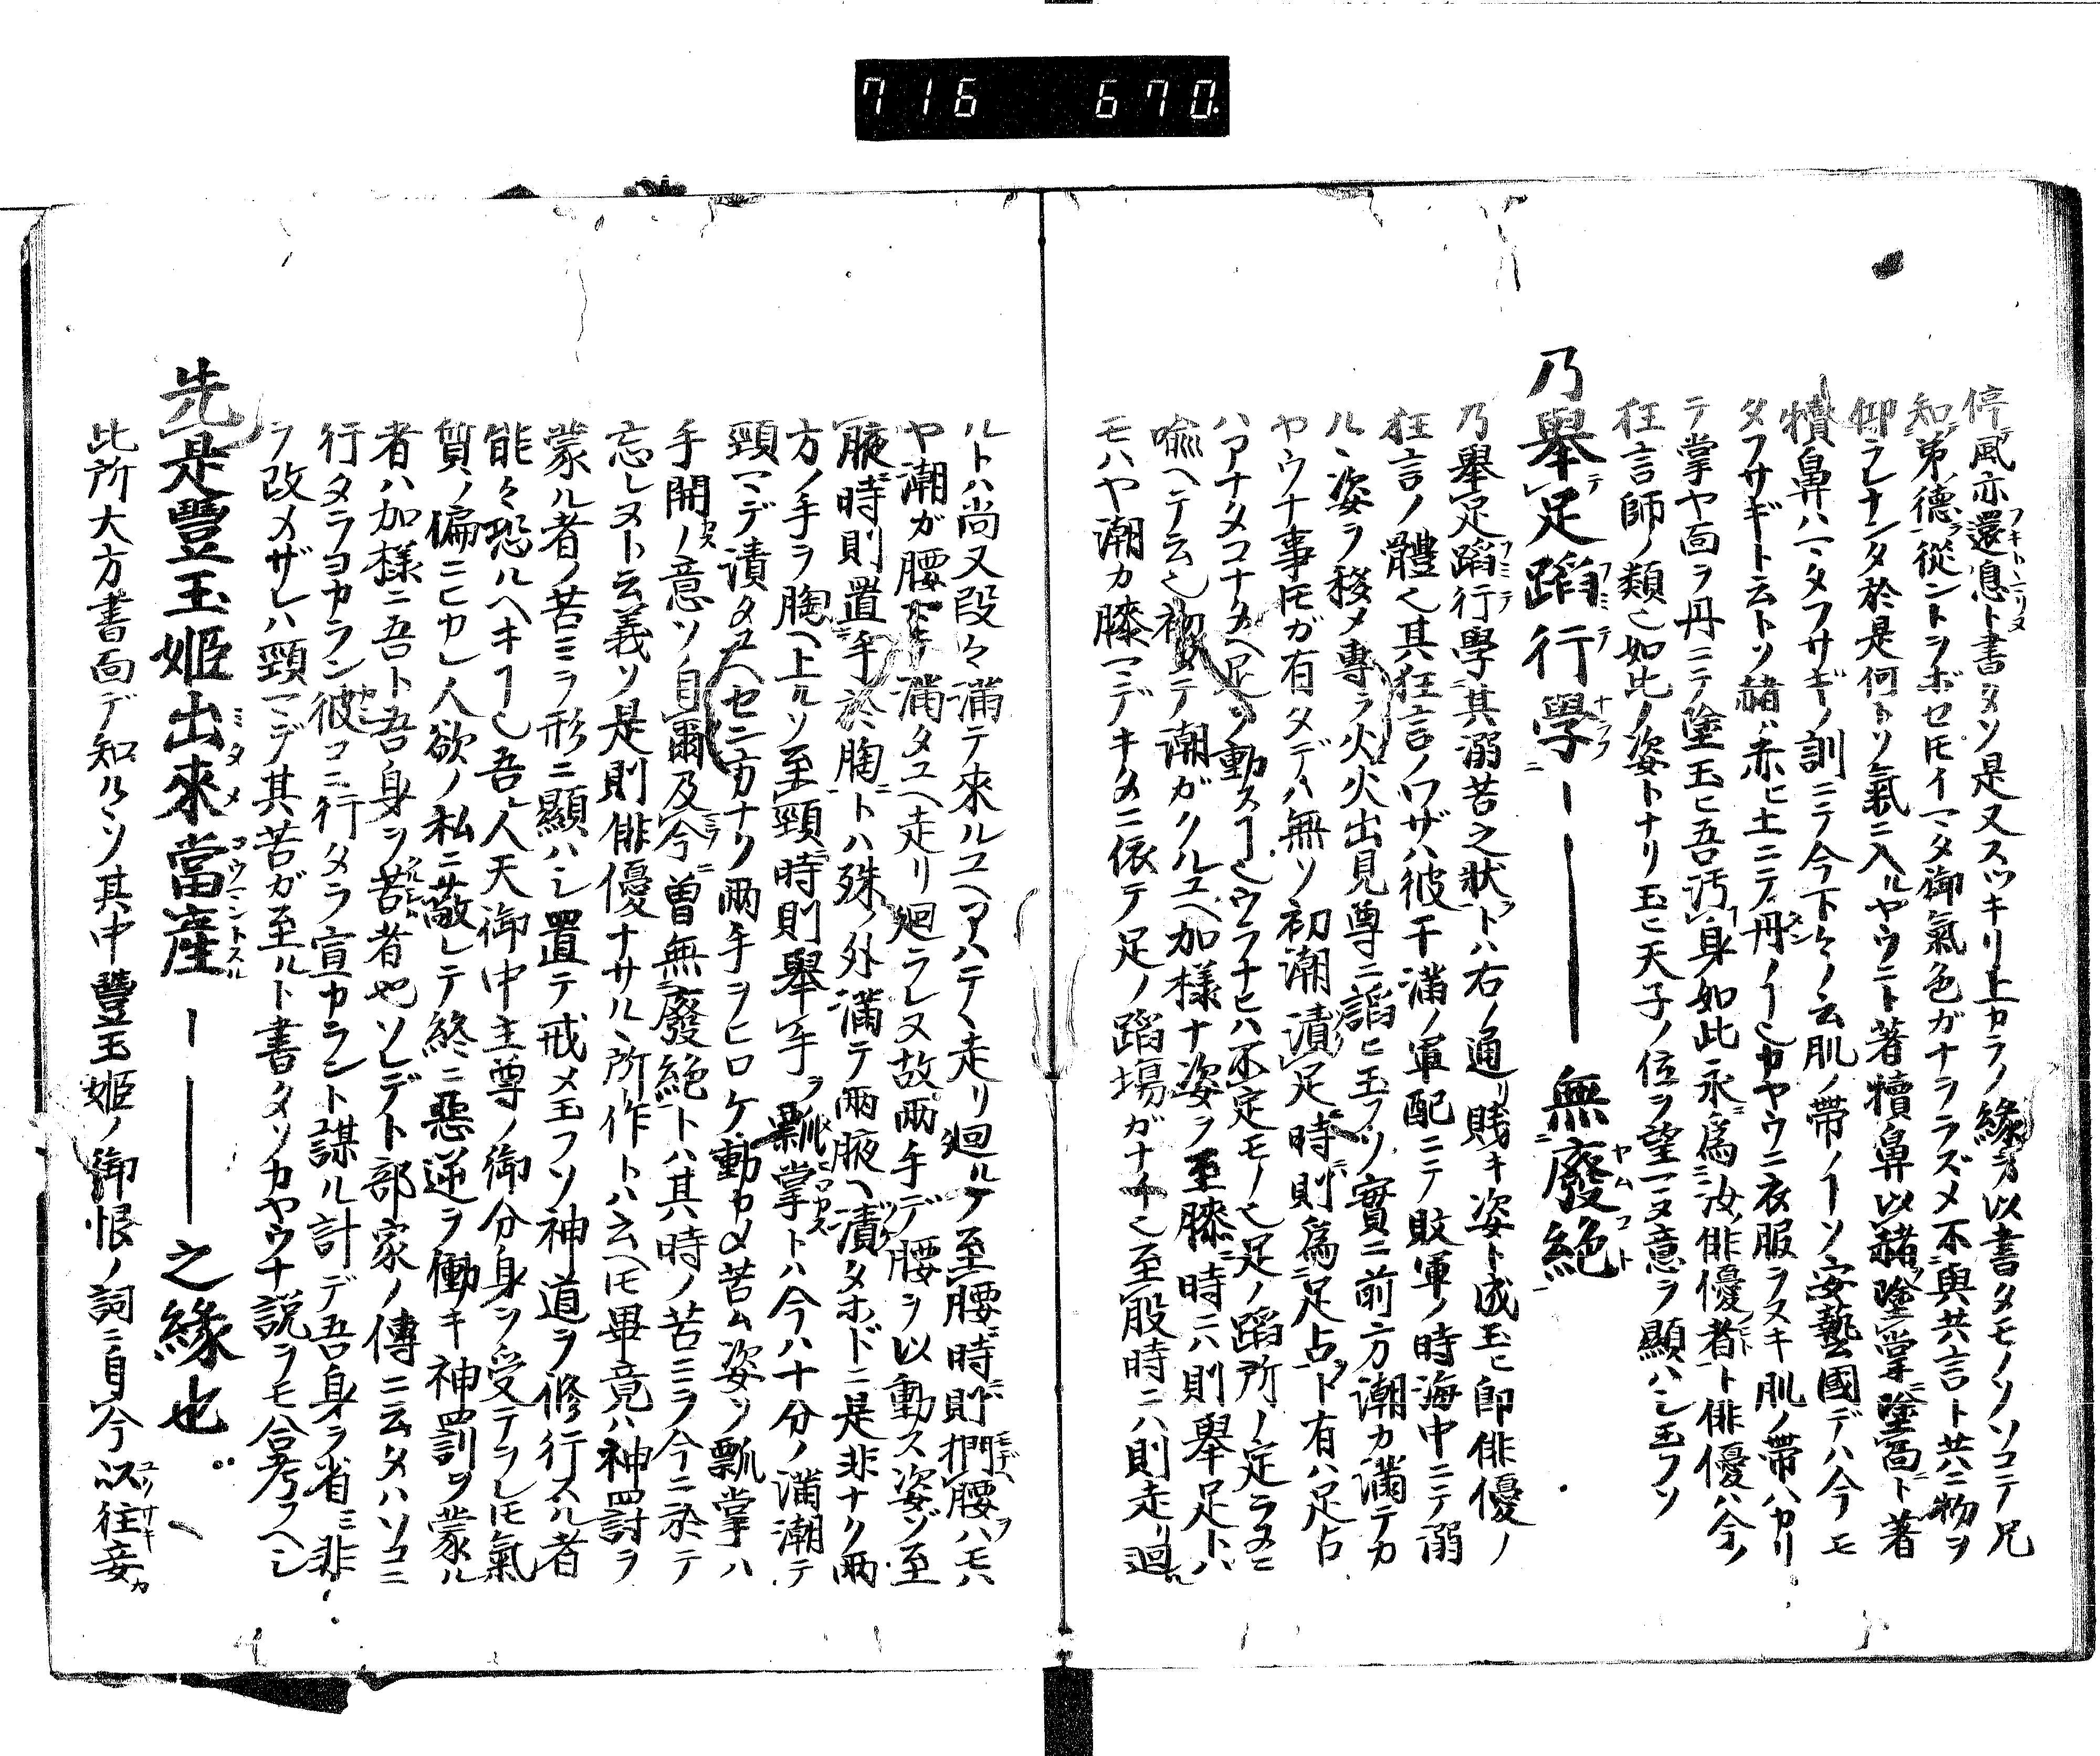 716 670
停風亦還息ト書タソ是又スツキリ上カラノ縁ヲ以書タモノソソコテ兄
知弟德從ントヲボセ𪜈イマタ御氣色ガナヲラズメ不與共言ト共ニ物ヲ
仰ラレナンタ於是何トソ氣ニ入ルヤウニト著犢鼻以赭塗掌塗面ト著
犢鼻ハタフサギノ訓ニテ今下々ノ云肌ノ帯ノ𬼀ソ安藝國デハ今モ
タフサギト云トソ赭ハ赤ヒ土ニテ丹ノ𬼀也カヤウニ衣服ヲヌキ肌ノ帯ハカリ
テ掌ヤ面ヲ丹ニテ塗玉ヒ吾汚身如此永爲汝俳優者ト俳優ハ今ノ
狂言師ノ類也如此ノ姿トナリ玉ヒ天子ノ位ヲ望マヌ意ヲ顯ハシ玉フソ
乃擧足蹈行學ー無廢絶
乃擧足蹈行學其溺苦之状トハ右ノ通リ賎キ姿ト成玉ヒ即俳優ノ
狂言ノ體也其狂言ノワザハ彼干満ノ軍配ニテ敗軍ノ時海中ニテ溺
ルヽ姿ヲ移メ專ラ火火出見尊ニ謟ヒ玉フソ實ニ前方潮カ満テカ
ヤウナ事𪜈ガ有タデハ無ソ初潮漬足時則爲足占ト有ハ足占
ハアナタコナタヘ足ヲ動ス𬼀也ウラナヒハ不定モノ也足ノ蹈所ノ定ラヌニ
喩ヘテ云也初メテ潮ガクルユヘ加様ナ姿ヲ至膝時ニハ則擧足トハ
モハヤ潮カ膝マデキタニ依テ足ノ蹈場ガナイ也至股時ニハ則走リ廻
ルトハ尚又段々満テ來ルユヘアハテヽ走リ廻ルテ至腰時則捫腰ハモハ
ヤ潮ガ腰マデ満タユヘ走リ廻ラレヌ故両手デ腰ヲ以動ス姿ゾ至
腋時則置手於胸トハ殊ノ外満テ両腋ヘ漬タホドニ是非ナク両
方ノ手ヲ胸ヘ上ルソ至頸時則擧手飄掌トハ今ハ十分ノ満潮テ
頸マデ漬タユヘセン方ナク両手ヲヒロケ動カメ苦ム姿ソ飄掌ハ
手開ノ意ソ自爾及今曽無廢絶トハ其時ノ苦ミヲ今ニ於テ
忘レヌト云義ソ是則俳優ナサルヽ所作トハ云ヘ𪜈畢竟ハ神罰ヲ
蒙ル者ノ苦ミヲ形ニ顯ハシ置テ戒メ玉フソ神道ヲ修行スル者
能々恐ルヘキ𬼀也吾人天御中主尊ノ御分身ヲ受テヲレ𪜈氣
質ノ偏ニヒカレ人欲ノ私ニ蔽レテ終ニ惡逆ヲ働キ神罰ヲ蒙ル
者ハ加様ニ吾ト吾身ヲ苦者也ソレデト部家ノ傳ニ云タハソコニ
行タラヨカラン彼コニ行タラ宣カラント謀ル計デ吾身ヲ省ミ非
ヲ改メザレハ頸マデ其苦ガ至ルト書タソカヤウナ説ヲモ合考フヘシ
先是豐玉姫出來當産ー之縁也
此所大方書面デ知ルヽソ其中豐玉姫ノ御恨ノ詞ニ自今以往妾